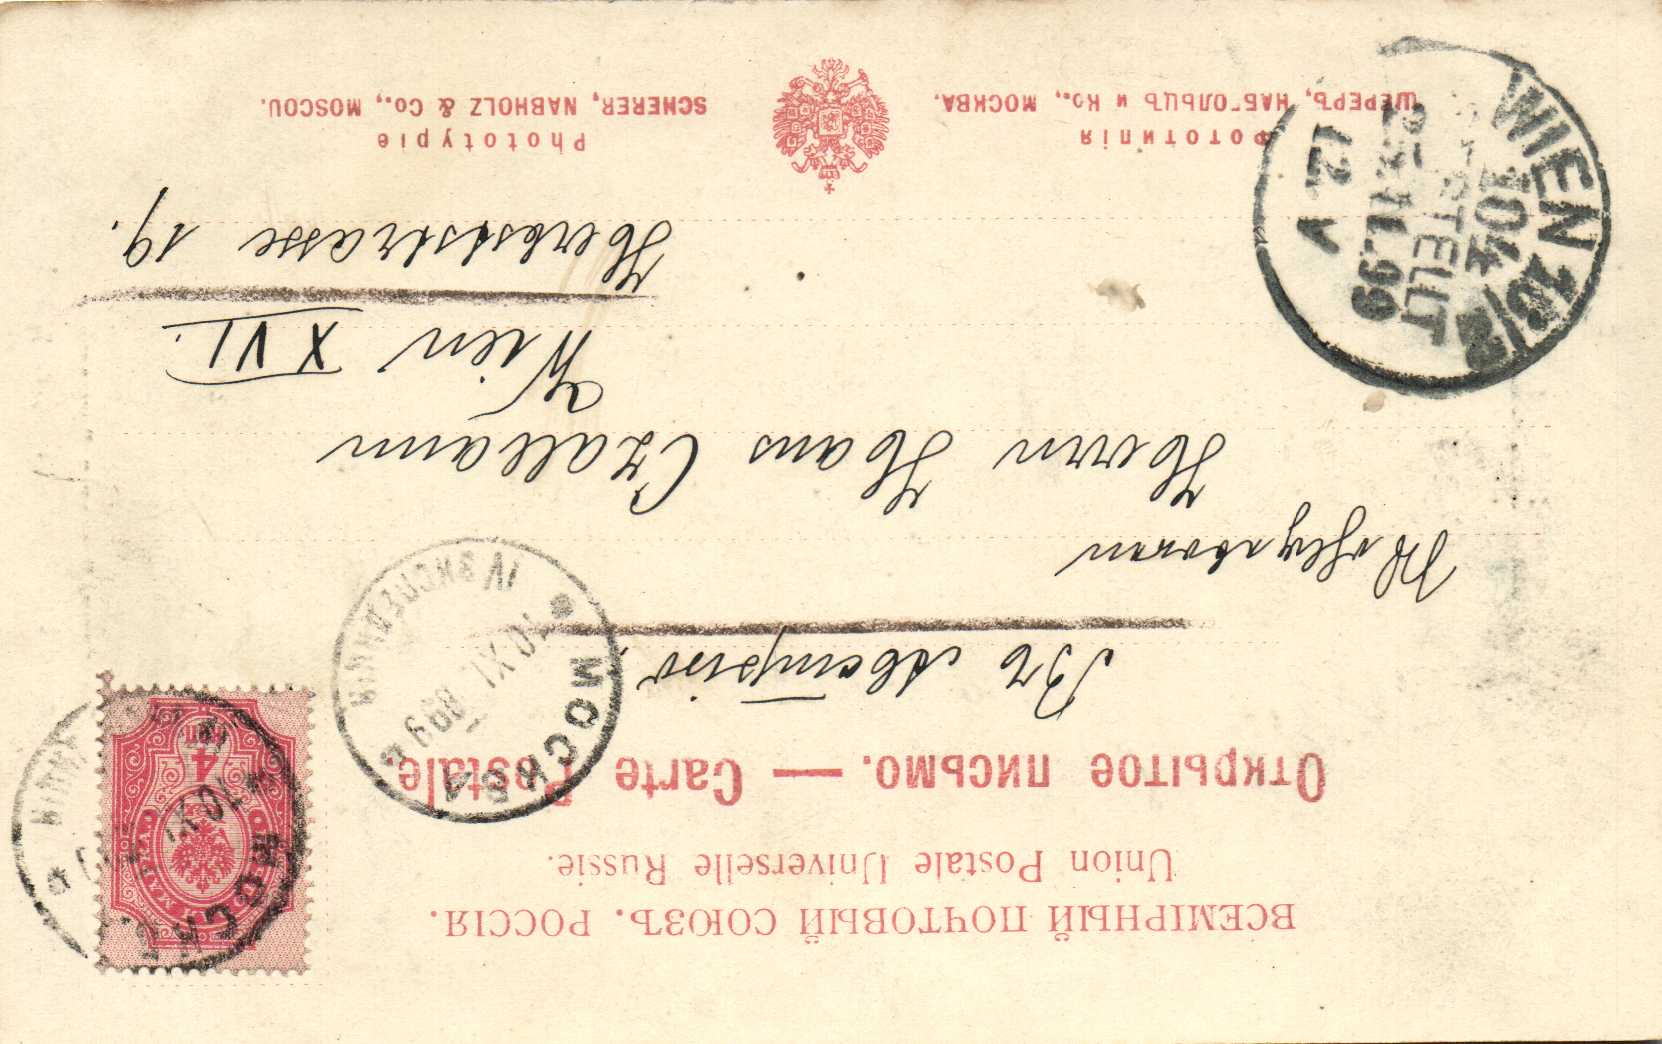 ВСЕМІРНЫЙ ПОЧТОВЫЙ СОЮЗЪ. РОССІЯ.
Union Postale Universelle Russie.
Открытое письмо. — Carte Postale.
4
МАРКА
МОСКВА
МОСКВА
10 XI 1899
IV ЭКСПЕДИЦІЯ
Въ
Herrn Hans
Wien XVI.
Herbststrasse 19.
WIEN 16/2
104
BESTELLT
22.11.99
12-V
Фототипія
ШЕРЕРЪ, НАБГОЛЬЦЪ и Ко., МОСКВА.
Phototypie
SCHERER, NABHOLZ & Co., MOSCOU.